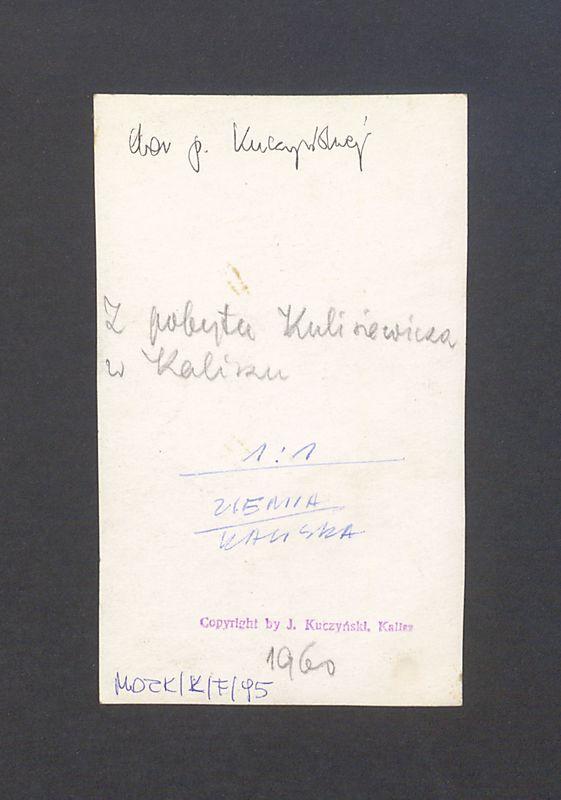 dar p. Kuczyńskiej
Z pobytu Kulisiewicza
w Kaliszu
1:1
ZIEMIA
KALISKA
Copyright by J. Kuczyński, Kalisz
1960
MOZK/K/F/95